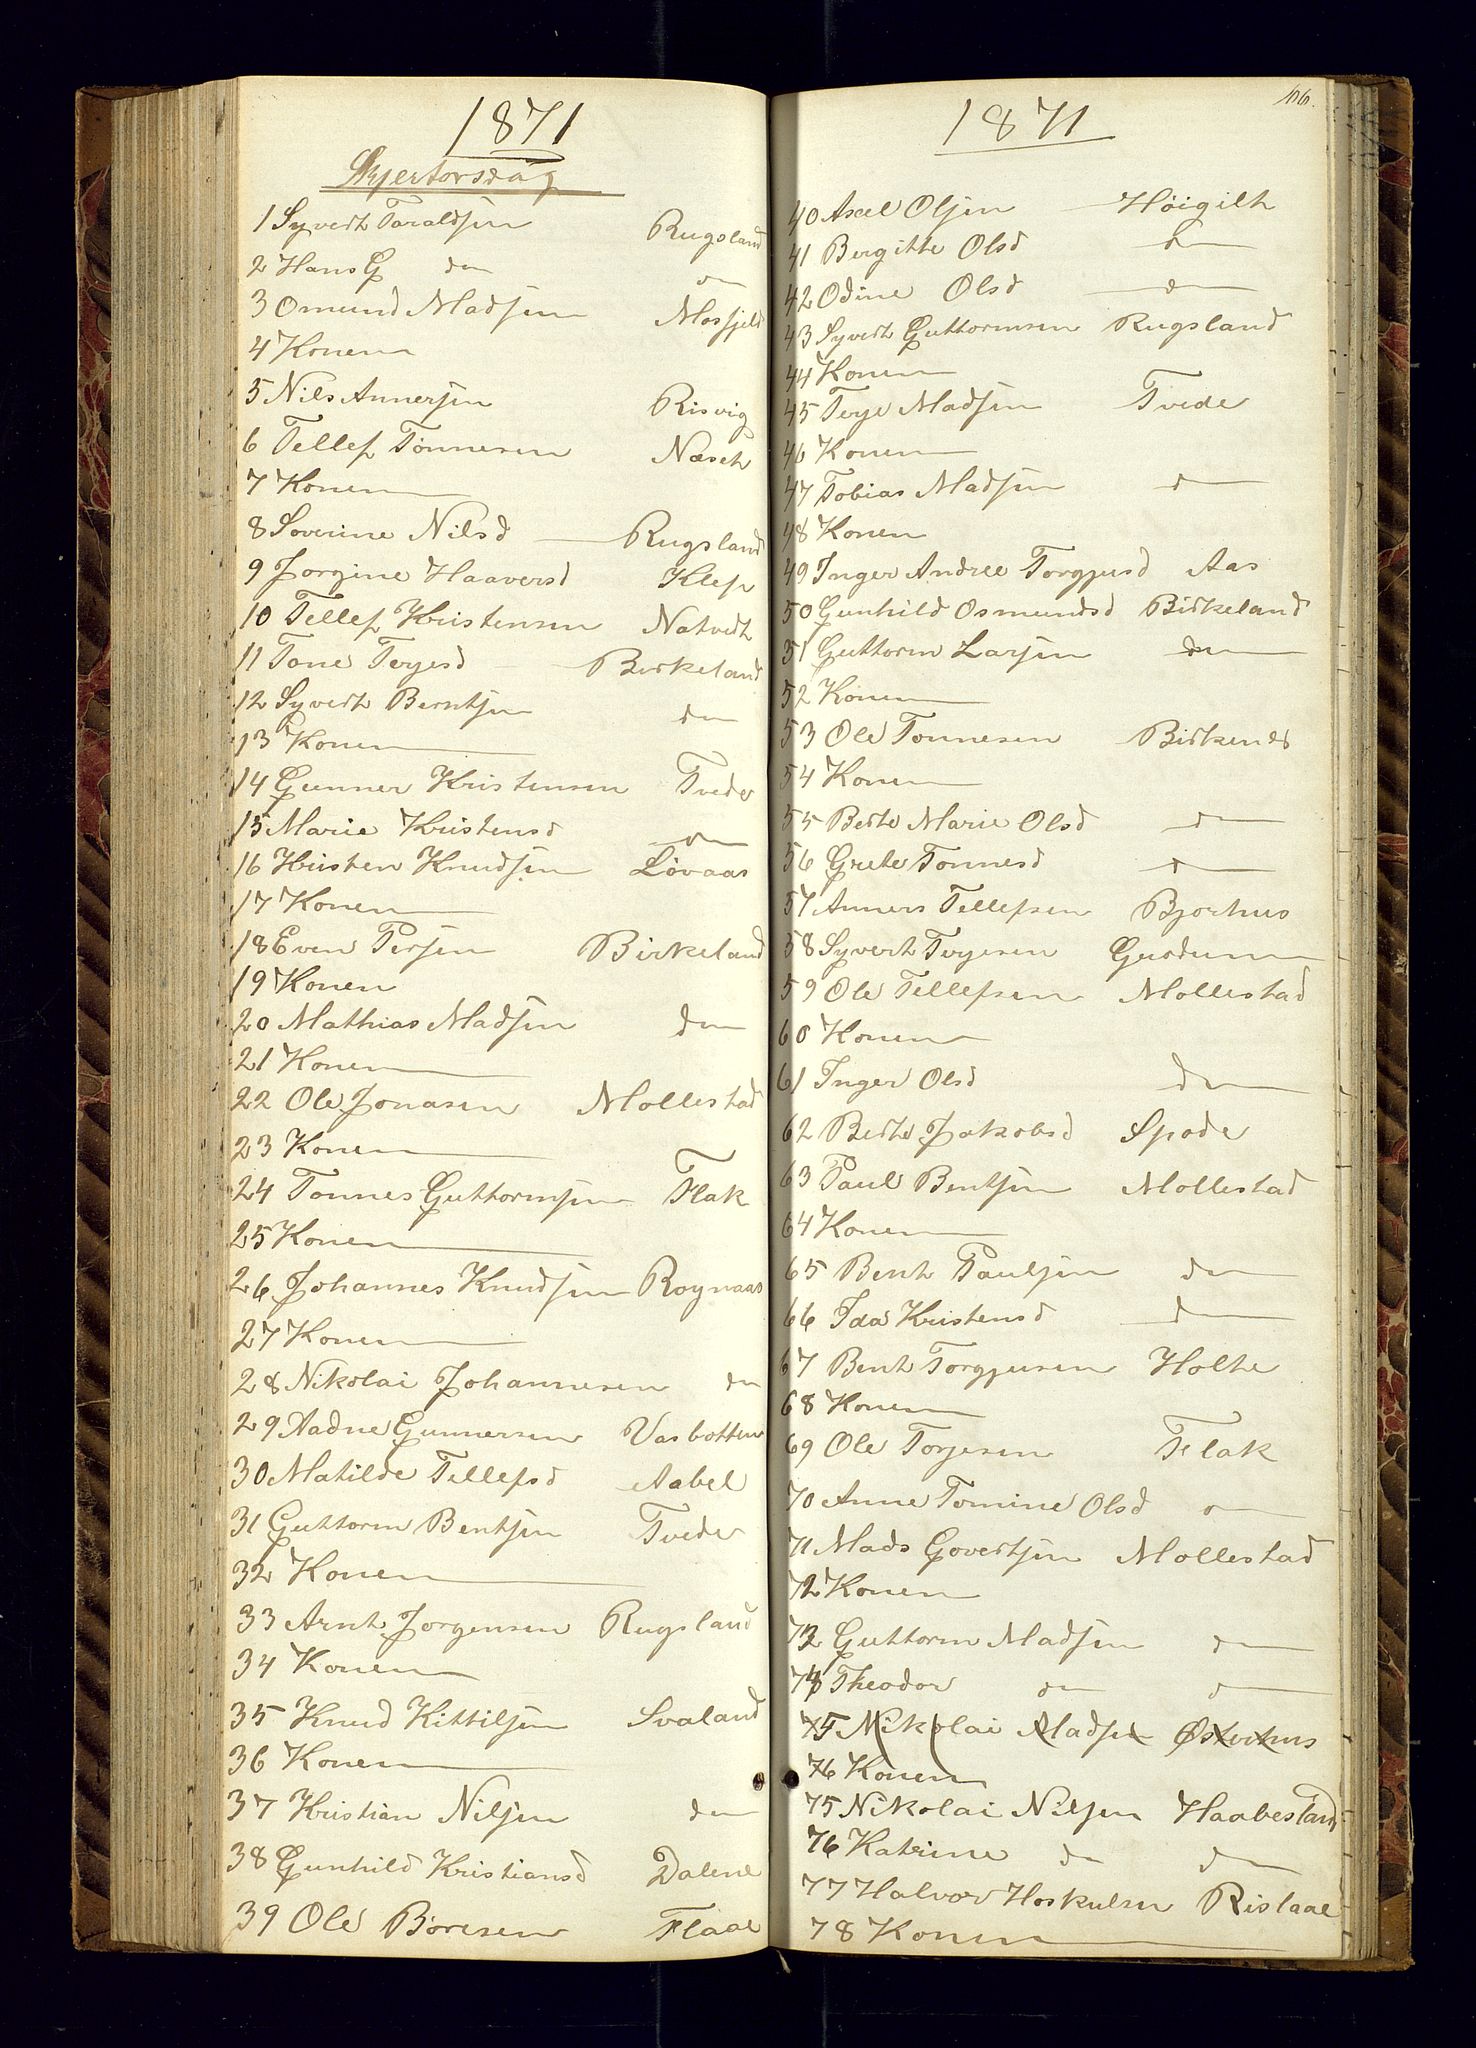 1871
Skjertorsdag
1 Syvert Taraldsen Rugsland
2 Hans G do do
3 Osmund Madsen Mosfjeld
4 Konen
5 Nils Annersen Risvig
6 Tellef Tønnesen Næset
7 Konen
8 Soverine Nilsd Rugsland
9 Jorgine Haaversd Klep
10 Tellef Kristensen Natvedt
11 Tone Terjesd Birkeland
12 Syvert Berntsen do
13 Konen
14 Gunner Kristensen Tvede
15 Marie Kristensd do
16 Kristen Knudsen Løvaas
17 Konen
18 Even Persen Birkeland
19 Konen
20 Mathias Madsen do
21 Konen
22 Ole Jonasen Mollestad
23 Konen
24 Tonnes Guttormsen Flak
25 Konen
26 Johannes Knudsen Roynaas
27 Konen
28 Nikolai Johannesen do
29 Aadne Gunnersen Vasbotten
30 Matilde Tellefsd Aabel
31 Guttorm Bentsen Tvede
32 Konen
33 Arnt Jorgensen Rugsland
34 Konen
35 Knud Kittilsen Svaland
36 Konen
37 Kristian Nilsen do
38 Gunhild Kristiansd Dalene
39 Ole Børesen Flaae
106.
1871
40 Axel Olsen Høigilt
41 Bergitte Olsd do
42 Odine Olsd do
43 Syvert Guttormsen Rugsland
44 Konen
45 Terje Madsen Tvede
46 Konen
47 Tobias Madsen do
48 Konen
49 Inger Andree Torgjusd Aas
50 Gunhild Osmundsd Birkeland
51 Guttorm Larsen do
52 Konen
53 Ole Tonnesen Birkenes
54 Konen
55 Berte Marie Olsd do
56 Grete Tonnesd do
57 Anners Tellefsen Bjorhus
58 Syvert Terjesen
59 Ole Tellefsen Mollestad
60 Konen
61 Inger Olsd do
62 Berte Jakobsd
63 Paul Bentsen Mollestad
64 Konen
65 Bent Paulsen do
66 Ida Kristensd do
67 Bent Torgjusen Holte
68 Konen
69 Ole Torjesen Flak
70 Anne Tomine Olsd do
71 Mads Govertsen Mollestad
72 Konen
73 Guttorm Madsen do
74 Theodor do do
75 Nikolai Madsen Østerhus
76 Konen
75 Nikolai Nilsen Haabesland
76 Katrine do do
77 Halvor Hoskulsen Rislaae
78 Konen